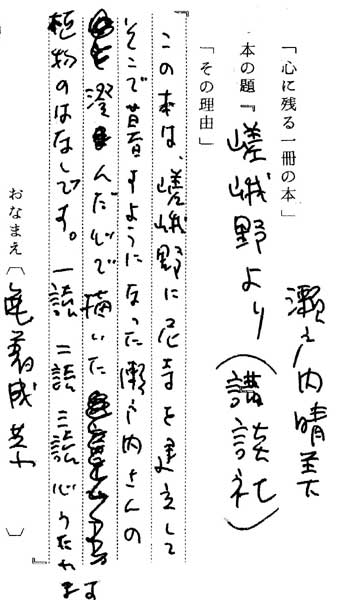 「心に残る一冊の本」
瀬戸内晴美
本の題『嵯峨野より（講談社）
「その理由」
この本は、嵯峨野に尼寺を建立して
そこで暮すようになった瀬戸内さんの
澄んだ心で描いた
植物のはなしです。一話二話三話心うたれます
』
おなまえ〔
〕